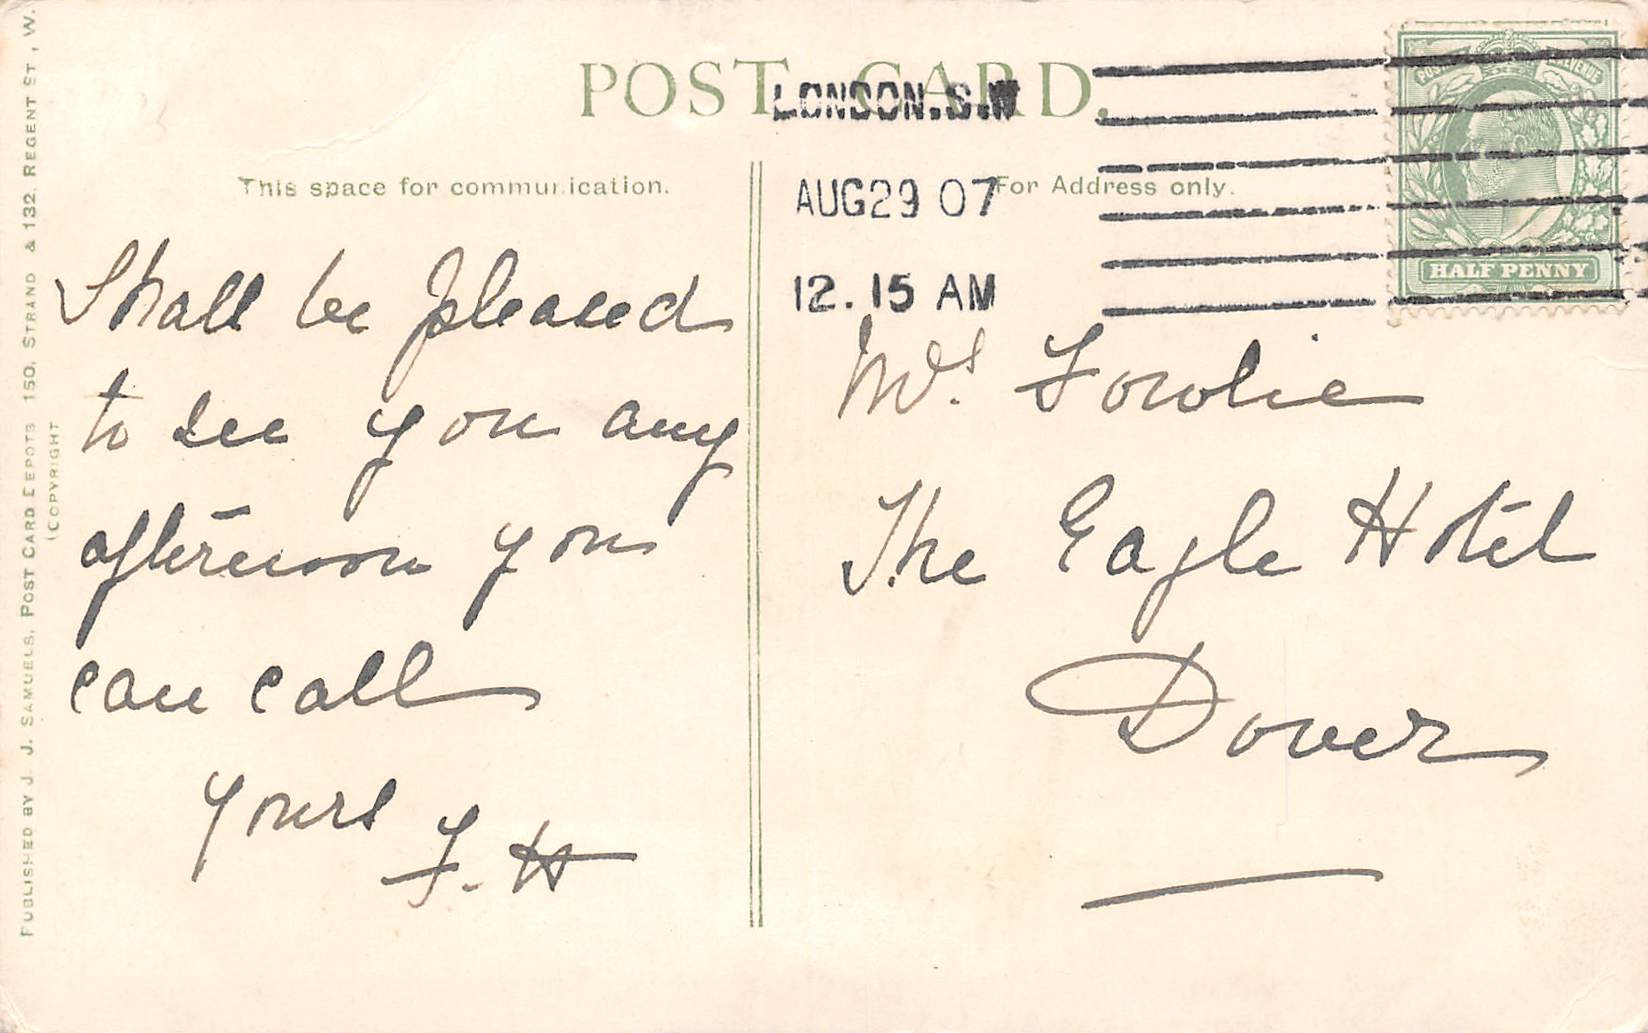 POST CARD.
LONDON.S.W
AUG 29 07
12.15 AM
POSTAGE REVENUE
HALF PENNY
This space for communication.
For Address only.
Shall be pleased
to see you any
afternoon you
can call
Yours
F. H
Mrs. Fowlie
The Eagle Hotel
Dover
PUBLISHED BY J. J. SAMUELS, POST CARD DEPOTS 150, STRAND & 132, REGENT ST, W.
(COPYRIGHT